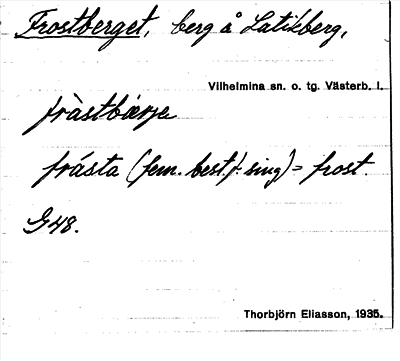 Frostberget, berg å Latikberg,
Vilhelmina sn. o. tg. Västerb. l.
fràstbærje
frásta (fem. best. f. sing) = frost.
G48.
Thorbjörn Eliasson, 1935.